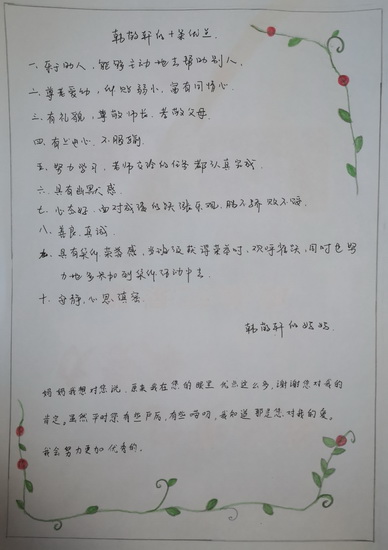 韩敬轩的十条优点
一、乐于助人，能够主动地去帮助别人。
二、尊老爱幼，保护弱小，富有同情心。
三、有礼貌，尊敬师长，孝敬父母。
四、有上进心，不服输。
五、努力学习，老师布置的任务都认真完成。
六、具有幽默感。
七、心态好，面对成绩的跌涨乐观，胜不骄败不馁。
八、善良、真诚。
九、具有集体荣誉感，当班级获得荣誉时，欢呼雀跃，同时也努
力地参加到集体活动中去。
十、安静，心思缜密。
韩敬轩的妈妈
妈妈我想对您说，原来我在您的眼里优点这么多，谢谢您对我的
肯定。虽然平时您有些严厉，有些唠叨，我知道那是您对我的爱。
我会努力更加优秀的。